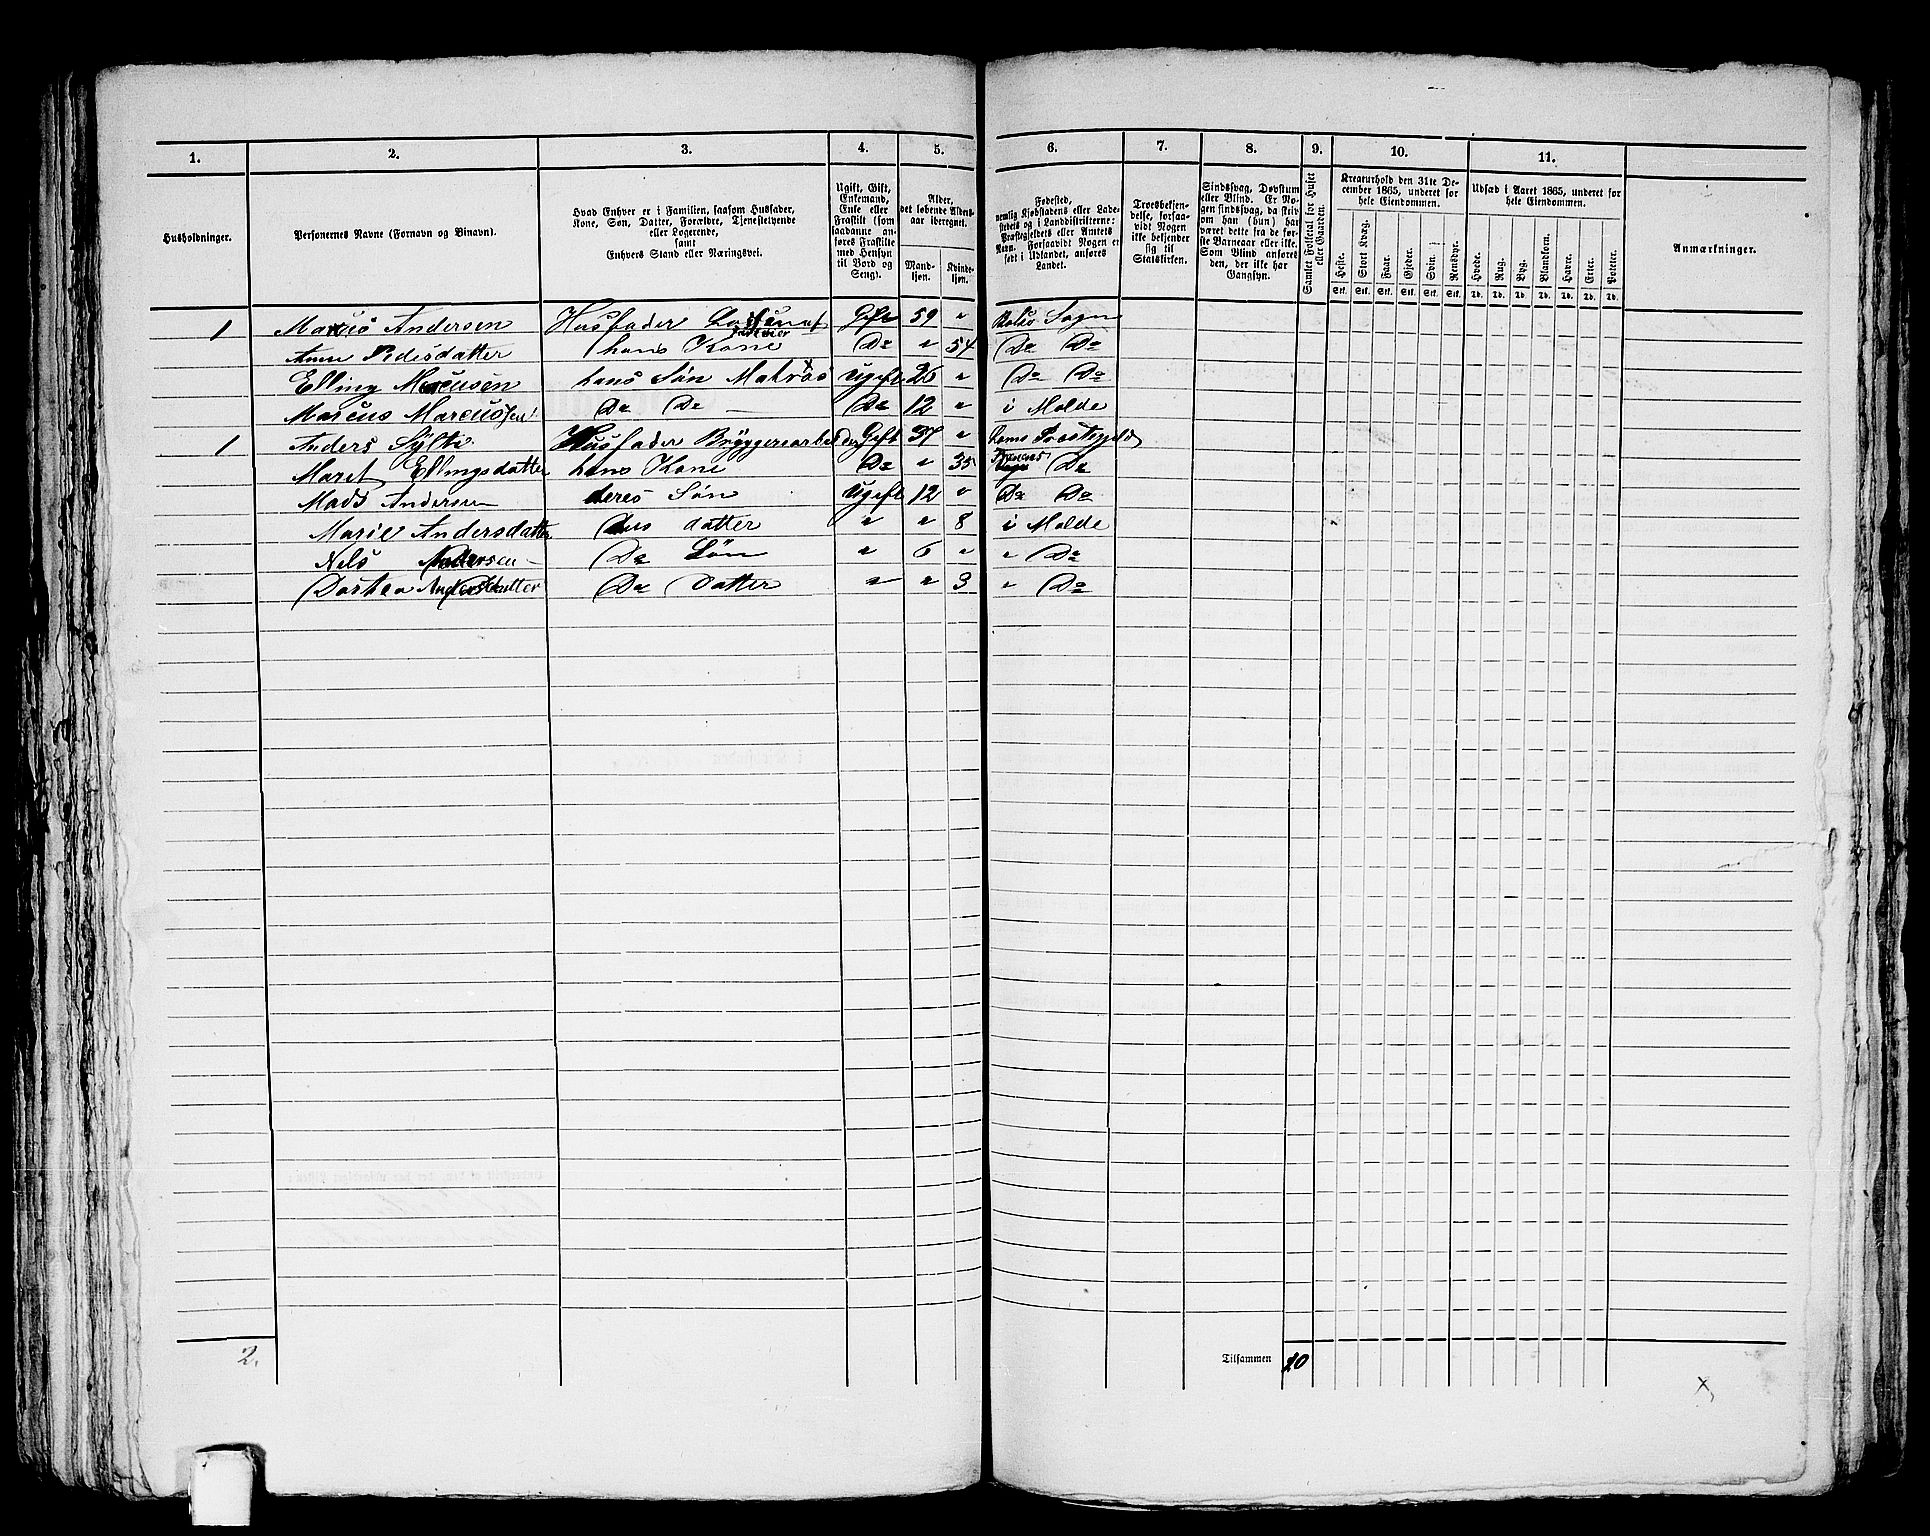 1. 2. 3. 4. 5. 6. 7. 8. 9. 10. 11.
Husholdninger.
Personernes Navne (Fornavn og Binavn).
Hvad Enhver er i Familien, saasom Husfader,
Kone, Søn, Datter, Forældre, Tjenestetyende
eller Logerende,
samt
Enhvers Stand eller Næringsvei.
Ugift, Gift,
Enkemand,
Enke eller
Fraskilt (som
saadanne an-
føres Fraskilte
med Hensyn
til Bord og
Seng).
Alder,
det løbende Alders-
aar iberegnet.
Mand-
kjøn.
Kvinde-
kjøn.
Fødested,
nemlig Kjøbstadens eller Lade-
stedets og i Landdistrikterne:
Præstegjeldets eller Amtets
Navn. Forsaavidt Nogen er
født i Udlandet, anføres
Landet.
Troesbekjen-
delse, forsaa-
vidt Nogen
ikke bekjender
sig til
Statskirken.
Sindssvag, Døvstum
eller Blind. Er No-
gen sindssvag, da skriv
om han (hun) har
været dette fra de før-
ste Barneaar eller ikke.
Som Blind anføres
den, der ikke har
Gangsyn.
Samlet Folketal for Huset
eller Gaarden.
Kreaturhold den 31te De-
cember 1865, underet for
hele Eiendommen.
Heste. Stort Kvæg. Faar. Gjeder. Svin. Rensdyr.
Stk. Stk. Stk. Stk. Stk. Stk.
Udsæd i Aaret 1865, underet for
hele Eiendommen.
Hvede. Rug. Byg. Blandkorn. Havre. Erter. Poteter.
Td. Td. Td. Td. Td. Td. Td.
Anmærkninger.
1 Marcus Andersen Husfader Gift 59 " Bolsø Sogn
Anne Pedersdatter hans Kone Do " 54 Do Do
Elling Marcusen hans Søn Matros Ugift 25 " Do Do
Marcus Marcussen Do Do Do 12 " i Molde
1 Anders Sylte Husfader Bryggeriearbeider Gift 37 " Præstegjeld
Maret Ellingsdatter hans Kone Do " 35 Do
Mads Andersen deres Søn Ugift 12 " Do Do
Marie Andersdatter datter " " 8 i Molde
Nels Andersen Do Søn " 6 " " Do
Dorthea Andersdatter Do Datter " " 3 " Do
2. Tilsammen 10